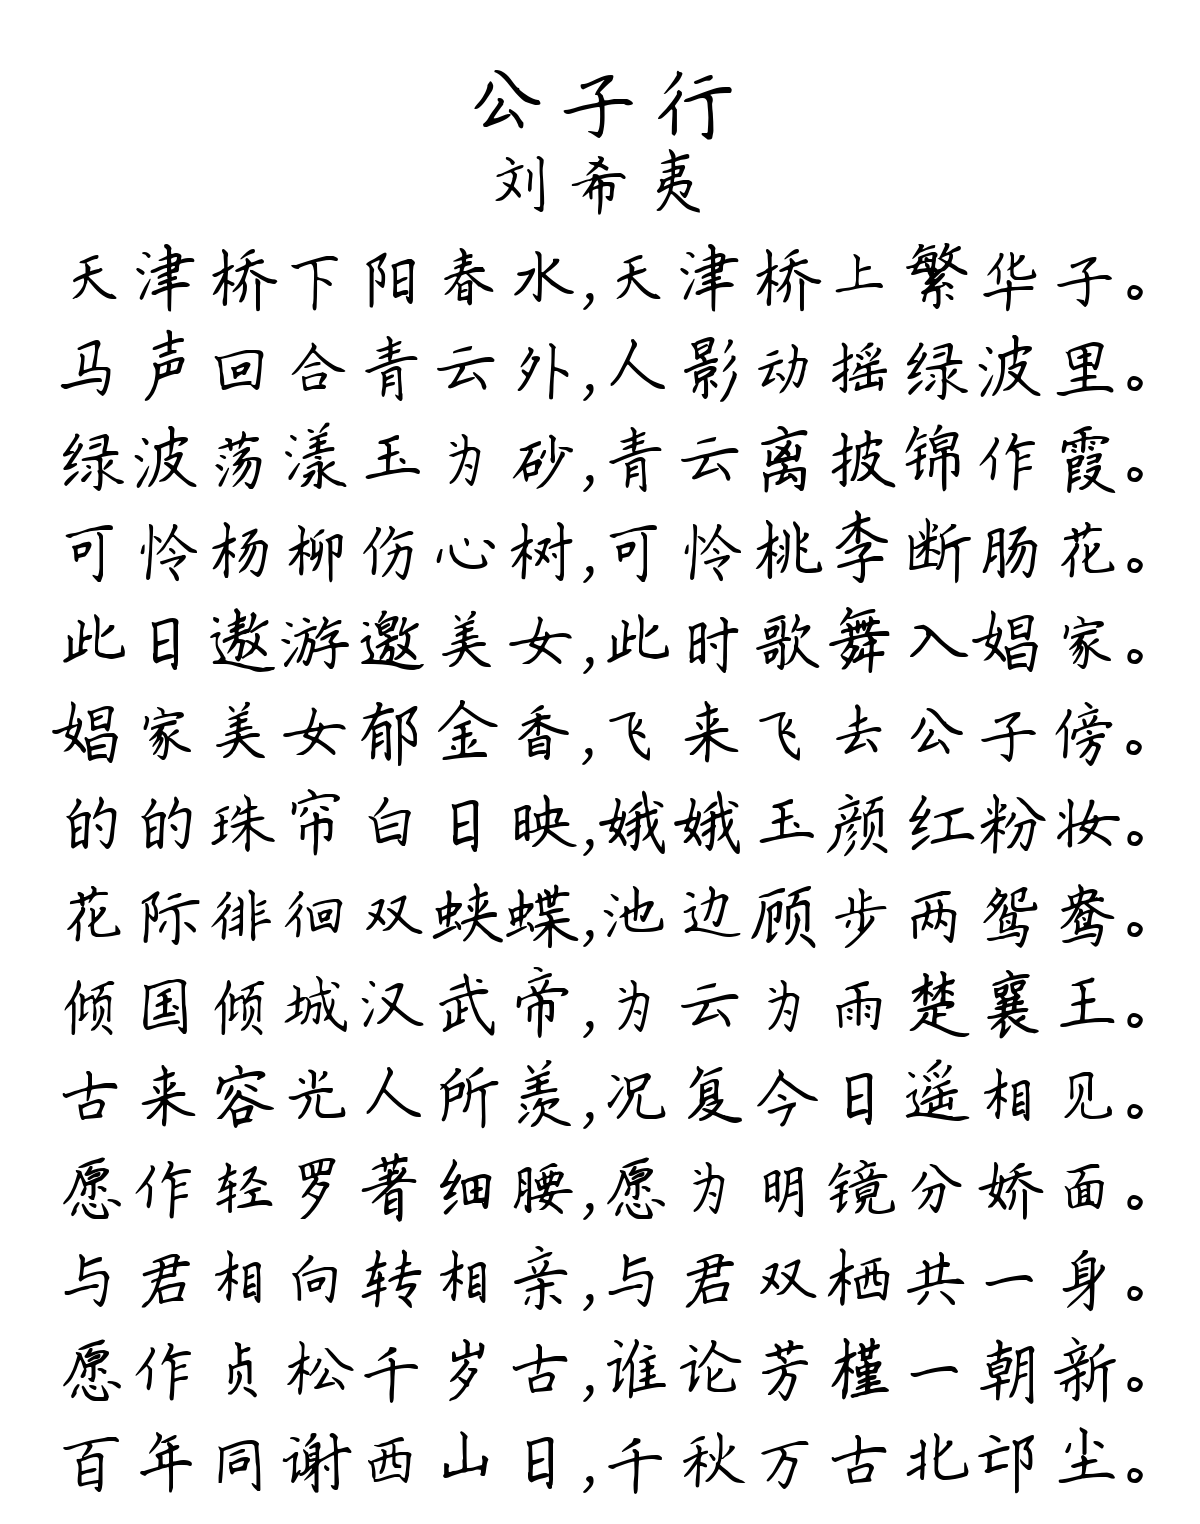 公子行
刘希夷
天津桥下阳春水,天津桥上繁华子。
马声回合青云外,人影动摇绿波里。
绿波荡漾玉为砂,青云离披锦作霞。
可怜杨柳伤心树,可怜桃李断肠花。
此日遨游邀美女,此时歌舞入娼家。
娼家美女郁金香,飞来飞去公子傍。
的的珠帘白日映,娥娥玉颜红粉妆。
花际徘徊双蛱蝶,池边顾步两鸳鸯。
倾国倾城汉武帝,为云为雨楚襄王。
古来容光人所羡,况复今日遥相见。
愿作轻罗著细腰,愿为明镜分娇面。
与君相向转相亲,与君双栖共一身。
愿作贞松千岁古,谁论芳槿一朝新。
百年同谢西山日,千秋万古北邙尘。